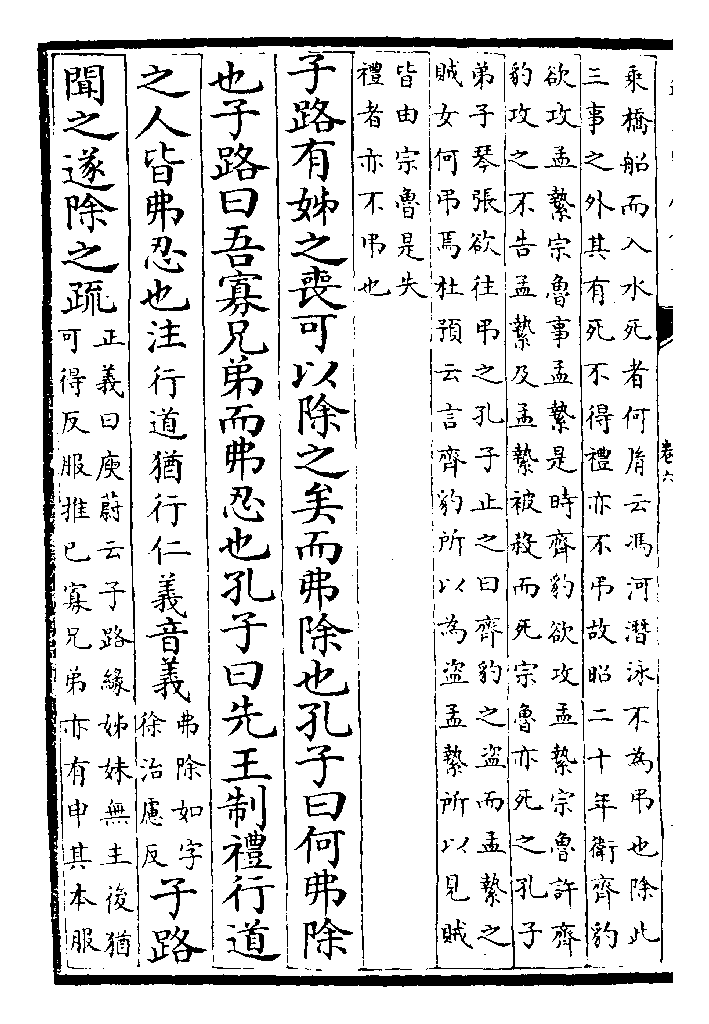 乘橋船而入水死者何胤云馮河潛泳不為弔也除此
三事之外其有死不得禮亦不弔故昭二十年衛齊豹
欲攻孟縶宗魯事孟縶是時齊豹欲攻孟縶宗魯許齊
豹攻之不告孟縶及孟縶被殺而死宗魯亦死之孔子
弟子琴張欲往弔之孔子止之曰齊豹之盜而孟縶之
賊女何弔焉杜預云言齊豹所以為盜孟縶所以見賊
皆由宗魯是失
禮者亦不弔也
子路有姊之喪可以除之矣而弗除也孔子曰何弗除
也子路曰吾寡兄弟而弗忍也孔子曰先王制禮行道
之人皆弗忍也注行道猶行仁義音義弗除如字徐治慮反子路
聞之遂除之疏正義曰庾蔚云子路緣姊妹無主後猶可得反服推已寡兄弟亦有申其本服
卷六